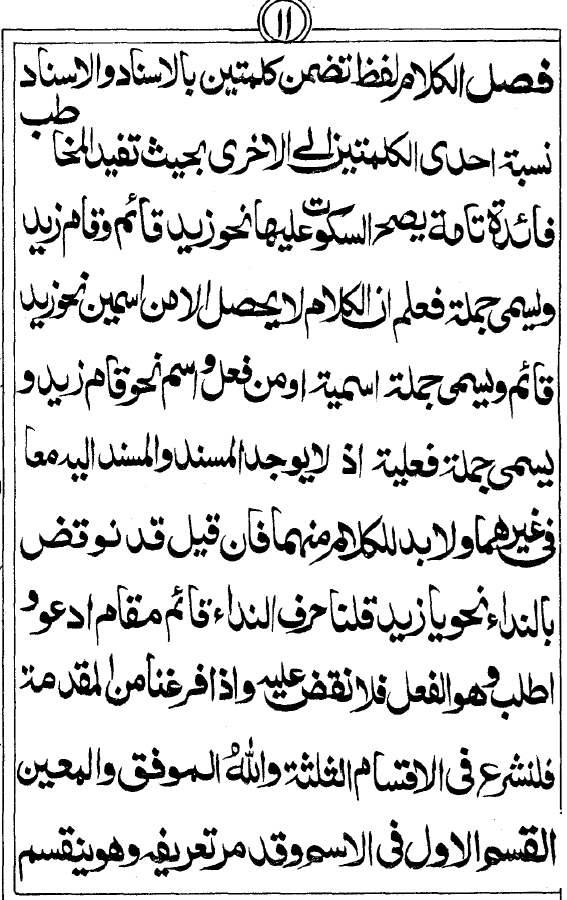 ١١
فصل الكلام لفظ تضمن كلمتين بالاسناد والاسناد
نسبة احدى الكلمتين الى الاخرى بحيث تفيد المخاطب
فائدة تامة يصح السكوت عليها نحو زيد قائم وقام زيد
ويسمى جملة فعلم ان الكلام لا يحصل الا من اسمين نحو زيد
قائم ويسمى جملة اسمية او من فعل واسم نحو قام زيد و
يسمى جملة فعلية اذ لا يوجد المسند والمسند اليه معا
فى غيرهما ولا بد للكلام منهما فان قيل قد نوقض
بالنداء نحو يا زيد قلنا حرف النداء قائم مقام ادعو و
اطلب وهو الفعل فلا نقض عليه واذا فرغنا من المقدمة
فلنشرع فى الاقسام الثلثة واللهُ الموفق والمعين
القسم الاول فى الاسم وقد مر تعريفه وهو ينقسم